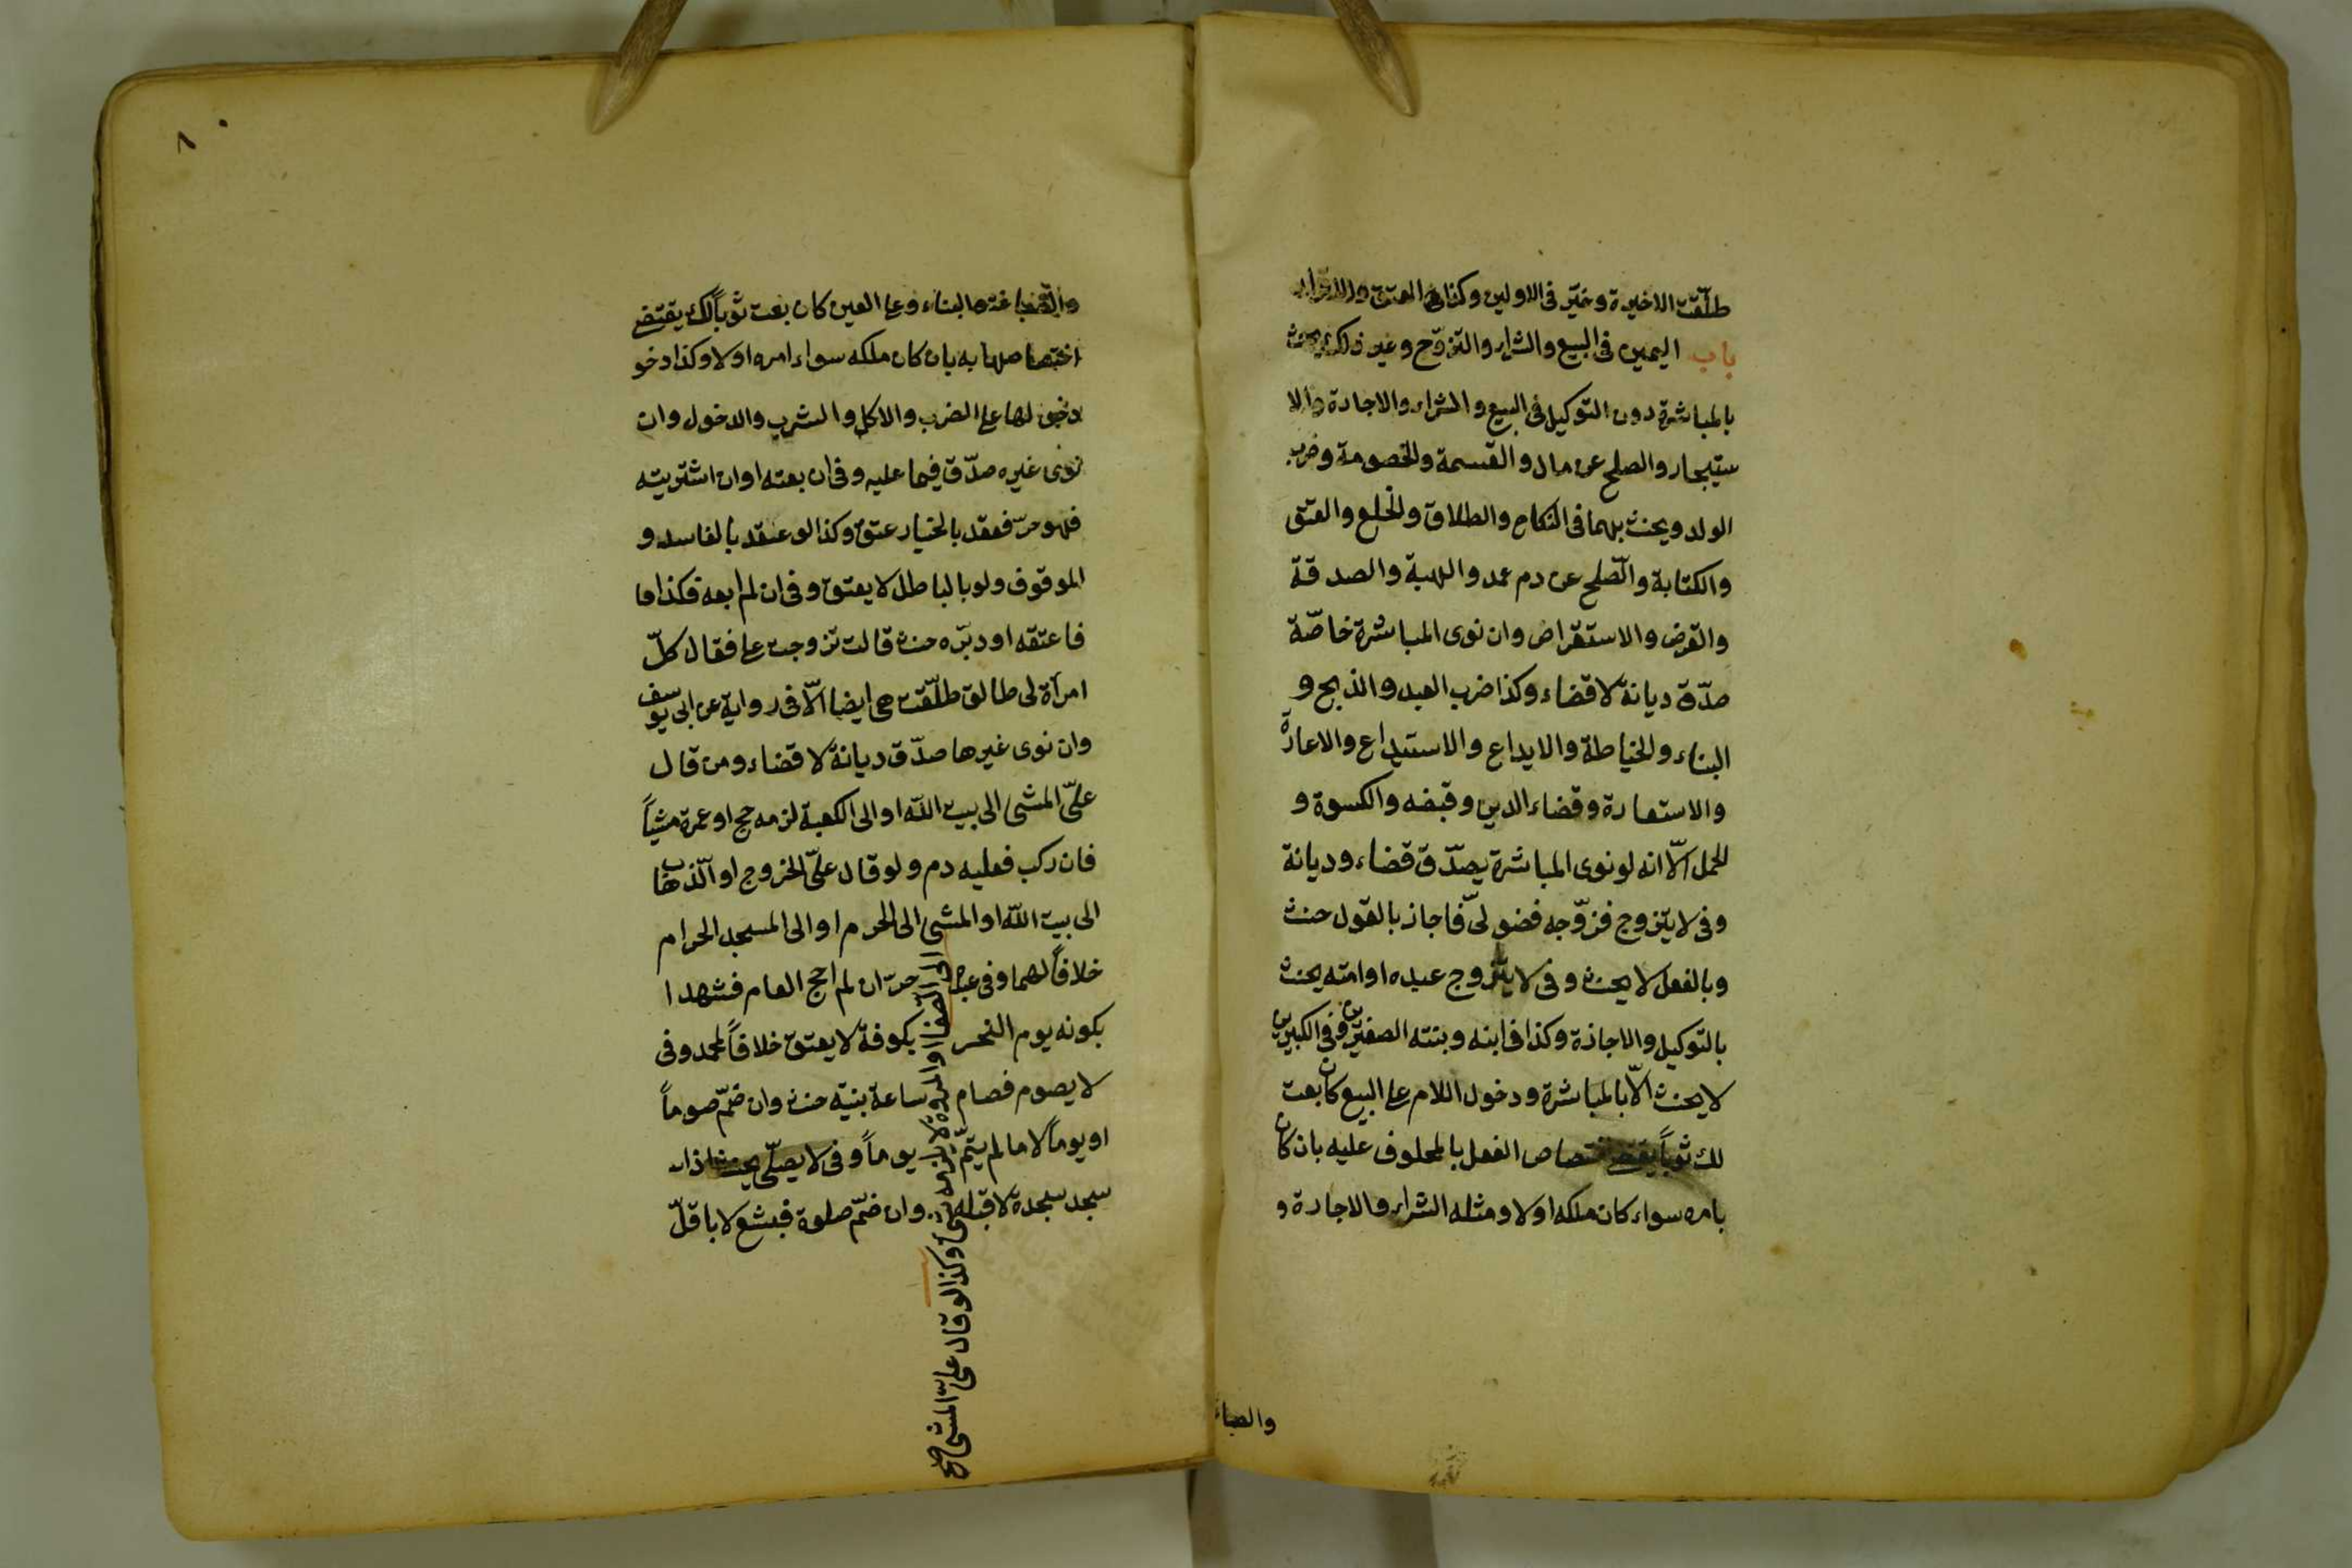 طلّقت الاخيرة وخيّر فى الاولين وكذا العتق والاقرار
باب اليمين فى البيع والشراء والتزوّج وغير ذلك يحنث
بالمباشرة دون التوكيل فى البيع والشراء والاجارة والا
ستيجار والصلح عن مال والقسمة والخصومة وضرب
الولد ويحنث بهما فى النكاح والطلاق والخلع والعتق
والكتابة والصّلح عن دم عمد والهبة والصدقة
والقرض والاستقراض وان نوى المباشرة خاصّة
صدّق ديانة لا قضاء وكذا ضرب العبد والذبح و
البناء والخياطة والايداع والاستيداع والاعارة
والاستعارة وقضاء الدين وقبضه والكسوة و
الحمل الّا انه لو نوى المباشرة يصدّق قضاء وديانة
وفى لا يتزوج فزوّجه فضولىّ فاجاز بالقول حنث
وبالفعل لا يحنث وفى لا يزوج عبده او امته يحنث
بالتوكيل والاجازة وكذا فى ابنه وبنته الصغيرين وفى الكبيرين
لا يحنث الّا بالمباشرة ودخول اللام على البيع كان بعت
لك ثوباً يقتضى اختصاص الفعل بالمحلوف عليه بان كان
بامره سواء كان ملكه او لا ومثله الشراء والاجارة و
والصبا
٨٠
والصباغة والبناء وعلى العين كان بعت ثوباً لك يقتضى
اختصاصها به بان كان ملكه سواء امره او لا وكذا دخو
دخولها على الضرب والاكل والشرب والدخول وان
نوى غيره صدّق فيما عليه وفى ان بعته او ان اشتريته
فهو حرّ فعقد بالخيار عتق وكذا لو عقد بالفاسد و
الموقوف ولو بالباطل لا يعتق وفى ان لم ابعه فكذا فا
فاعتقه او دبّره حنث قالت تزوجت على فقال كلّ
امرأة لى طالق طلّقت هى ايضا الّا فى رواية عن ابى يوسف
وان نوى غيرها صدّق ديانة لا قضاء ومن قال
علىّ المشى الى بيت الله او الى الكعبة لزمه حج او عمرة مشياً
فان ركب فعليه دم ولو قال علىّ الخروج او الذهاب
الى بيت الله او المشى الى الحرم او الى المسجد الحرام
خلافاً لهما وفى عبده حرّ ان لم احج العام فشهدا
بكونه يوم النحر بكوفة لا يعتق خلافاً لمحمد وفى
لا يصوم فصام ساعة بنيّة حنث وان ضمّ صوماً
او يوماً لا ما لم يتمّ يوماً وفى لا يصلّى يحنث اذا
سجد سجدة لا قبله وان ضمّ صلوة فبشفع لا باقلّ
الى الصفا او المروة لا يلزمه شئ وكذا لو قال علىّ المشى صح